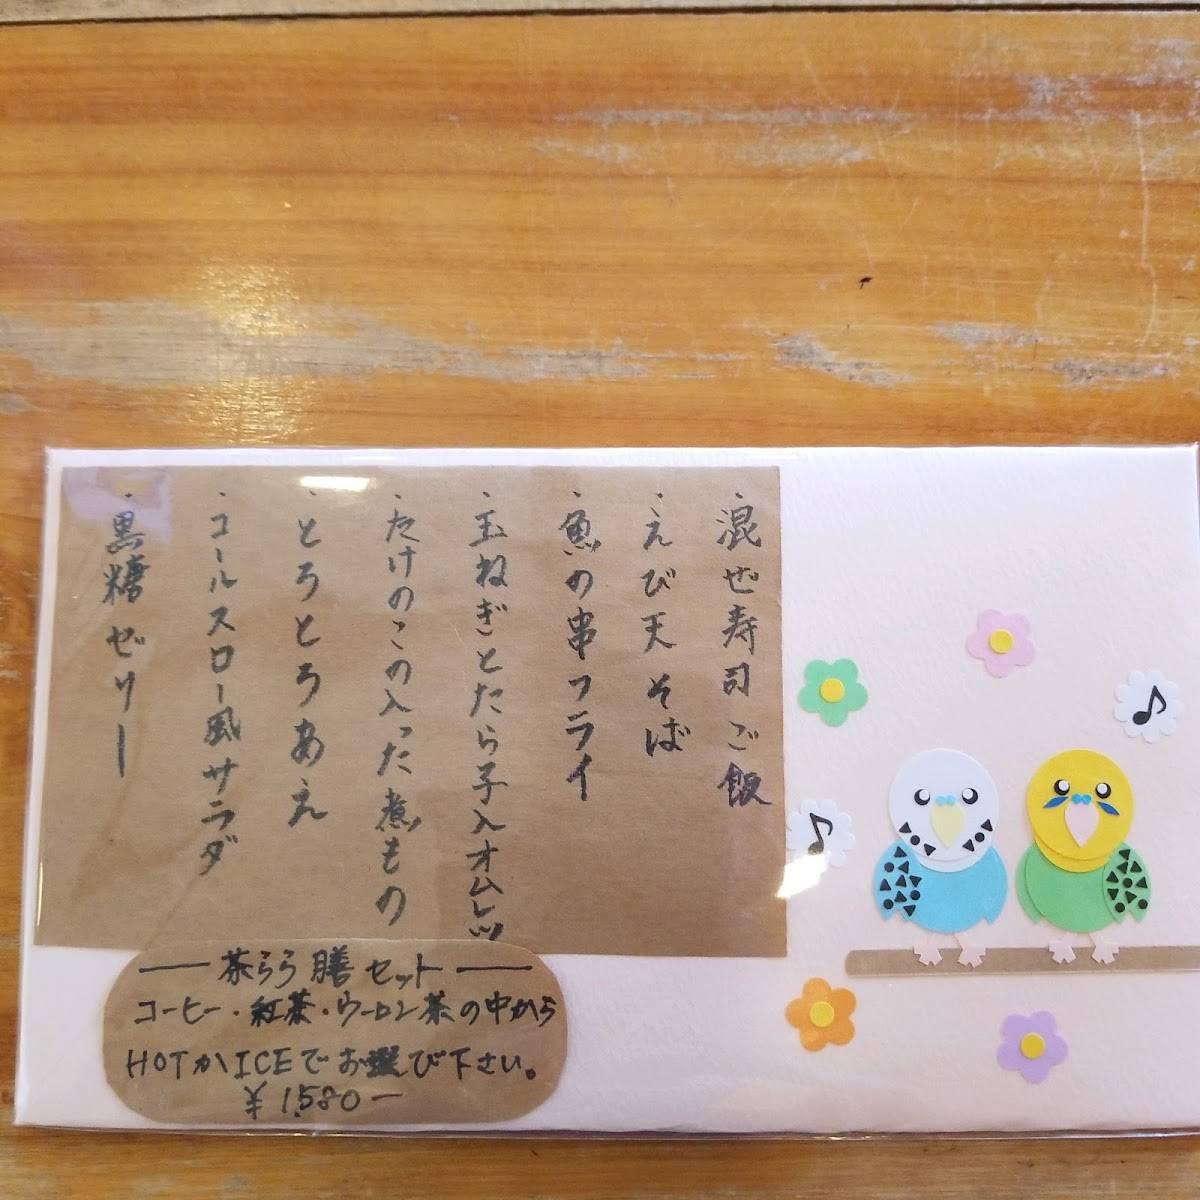 ・混ぜ寿司ご飯
・えび天そば
・魚の串フライ
・玉ねぎとたら子入オムレツ
・たけのこの入った煮もの
・とろとろあえ
・コールスロー風サラダ
・黒糖ゼリー
茶らら膳セット
コーヒー・紅茶・ウーロン茶の中から
HOTかICEでお選び下さい。
¥1,580ー